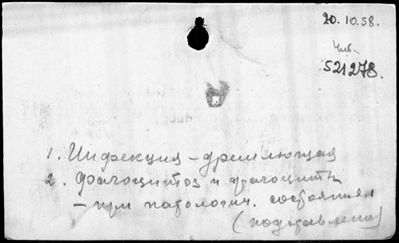 20.10.58.
Чит.
521278.
1. Инфекция - дремлющая
2. Фагоцитоз и фагоциты
- при патологич. состояниях
(подставлено)